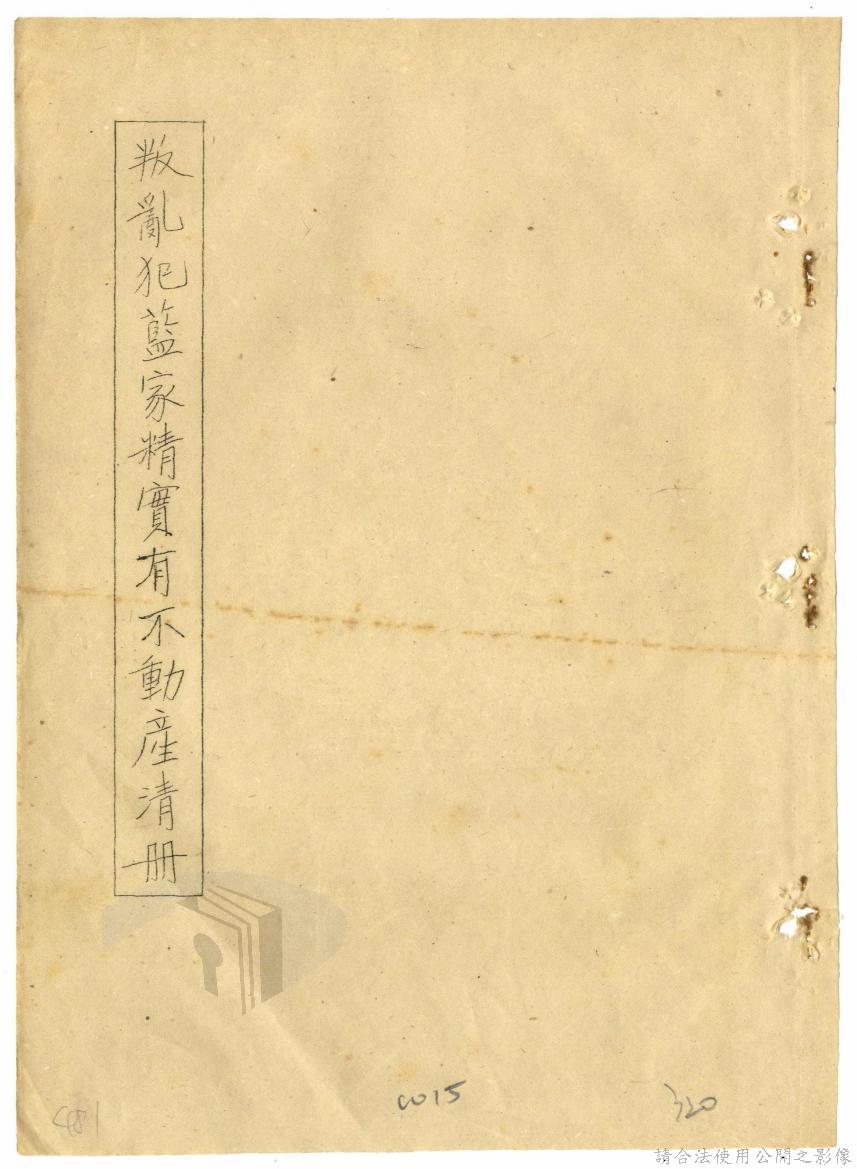 叛亂犯藍家精實有不動產清册
481
0015
320
請合法使用公開之影像